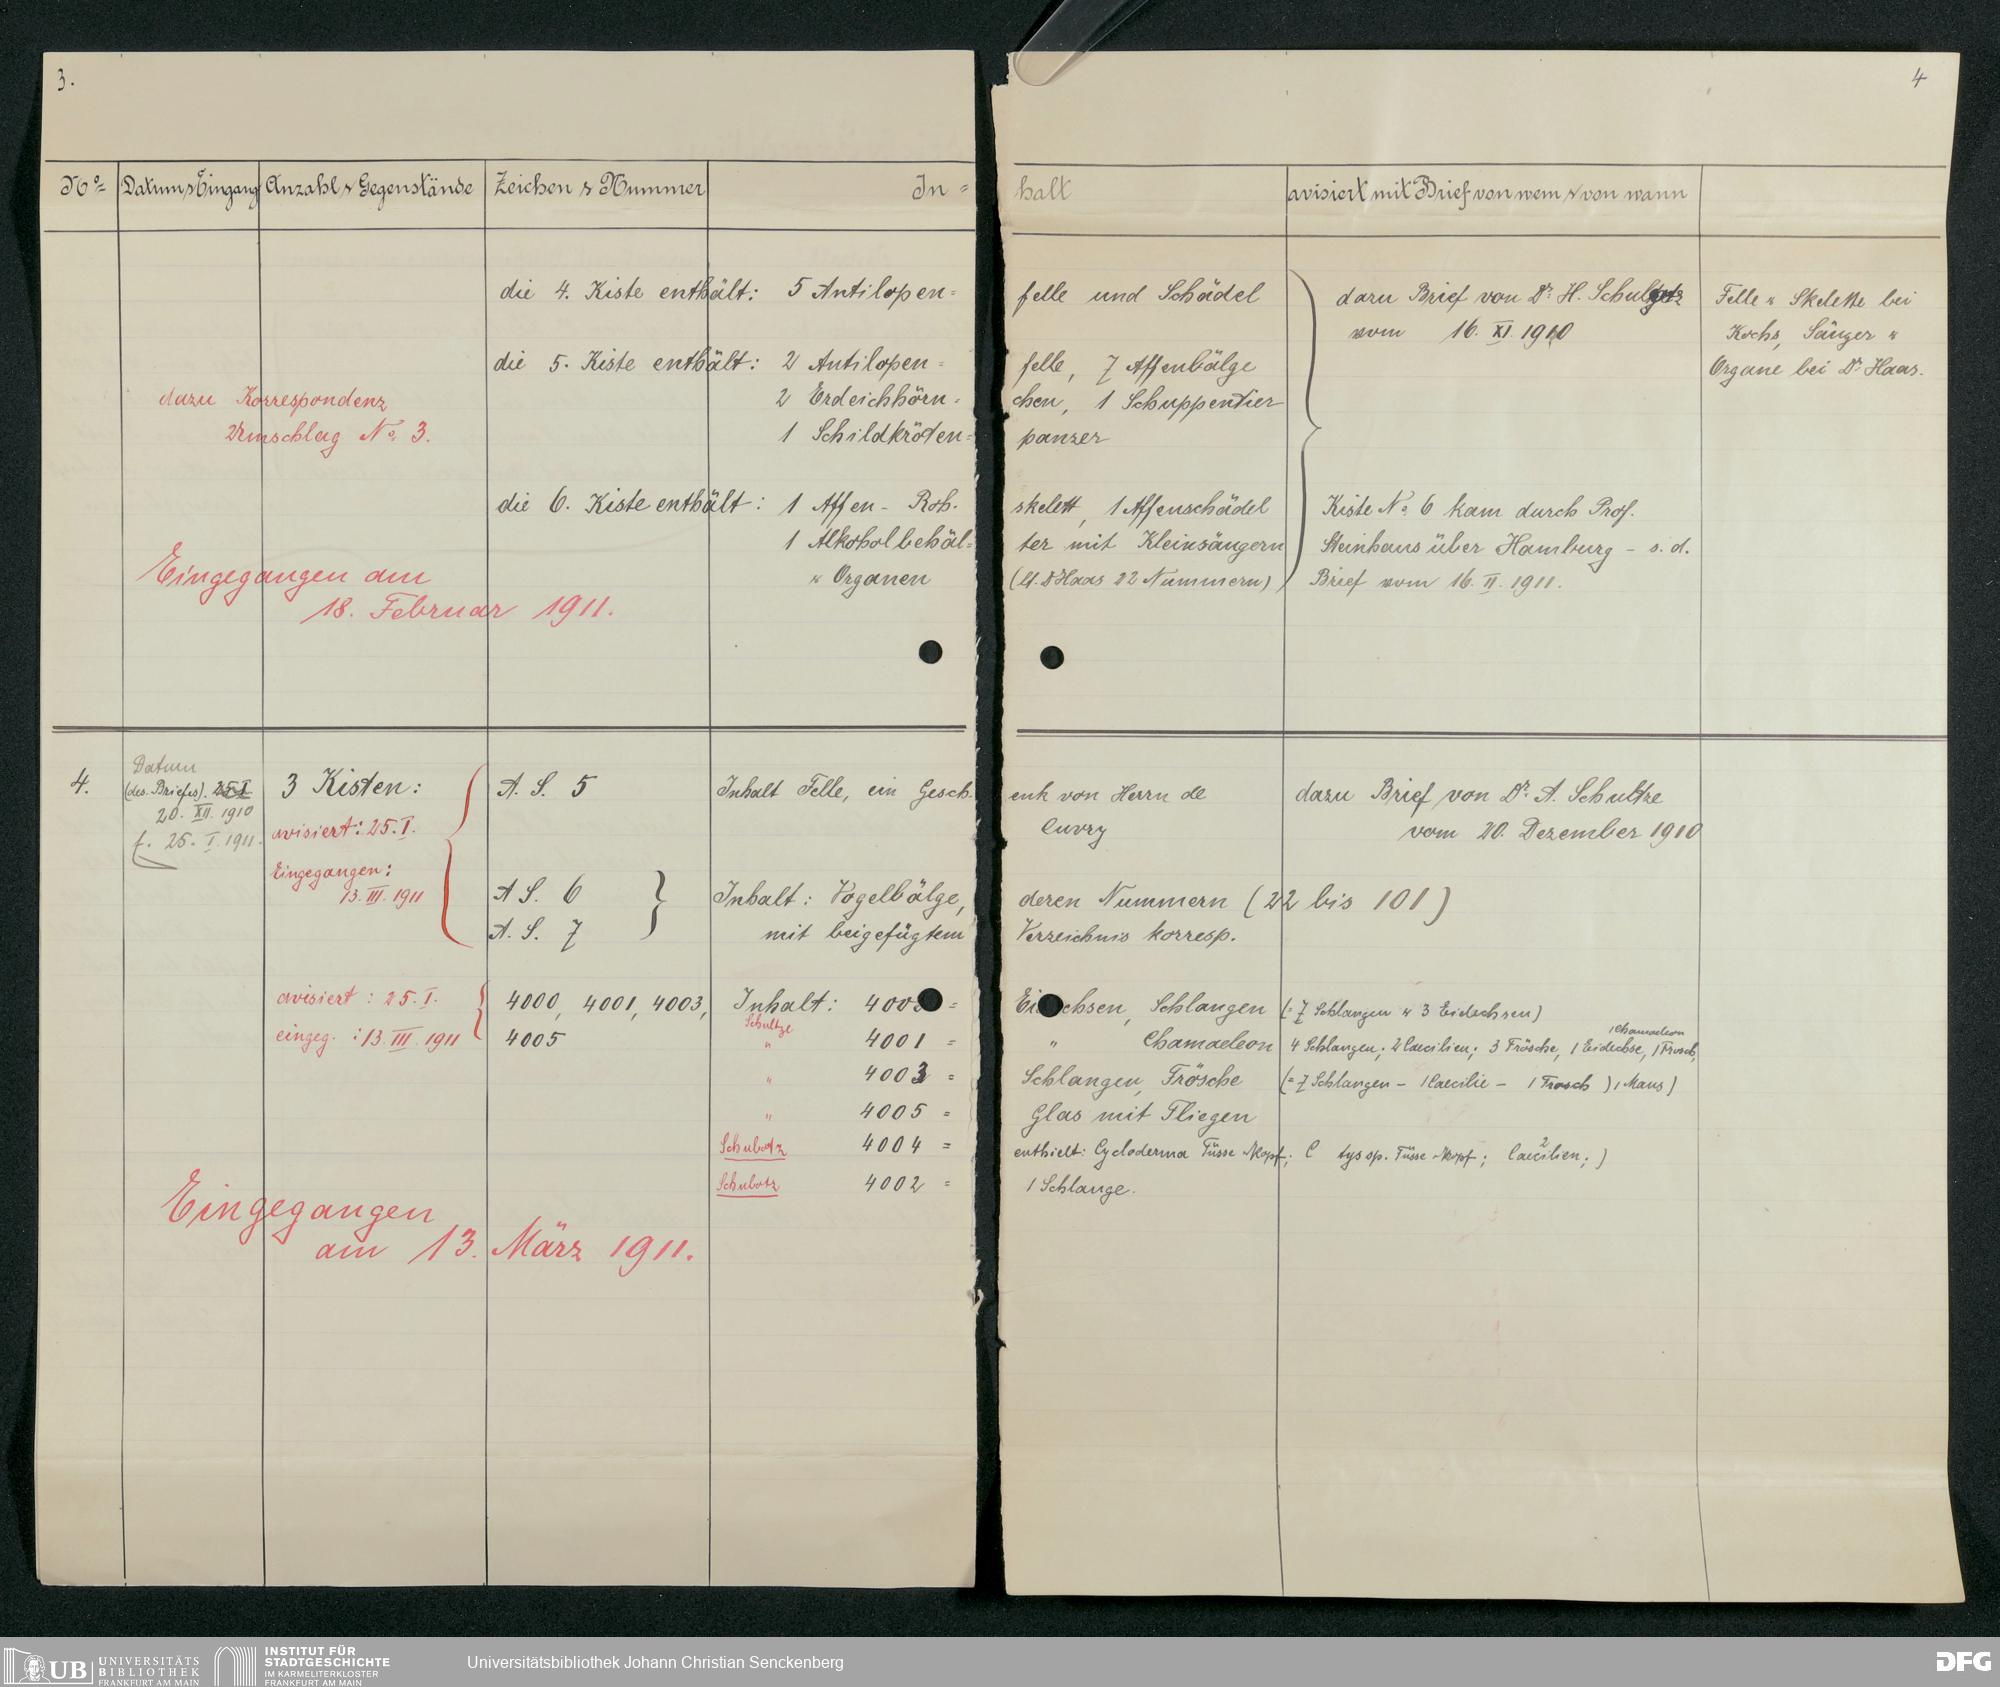 3.
4
No
Datum & Eingang
Anzahl & Gegenstände
Zeichen & Nummer
In=
halt
avisiert mit Brief von wem & von wann
die 4. Kiste enthält: 5 Antilopen=
felle und Schädel
dazu Brief von Dr. H.
vom 16. XI. 1910
Felle u Skelette bei
Kochs, Sänger u
Organe bei Dr. Haas.
die 5. Kiste enthält: 2 Antilopen=
felle, 7 Affenbälge
2 Erdeichhörn=
chen, 1 Schuppentier
1 Schildkröten=
panzer
dazu Korrespondenz
Umschlag No. 3.
die 6. Kiste enthält: 1 Affen- Roh.
skelett, 1 Affenschädel
1 Alkoholbehäl=
ter mit Kleinsäugern
u Organen
(lt. Dr Haas 22 Nummern)
Kiste No. 6 kam durch Prof.
Steinhaus über Hamburg - s. d.
Brief vom 16. II. 1911.
Eingegangen am
18. Februar 1911.
4.
Datum
(des Briefes). 25 I
20. XII. 1910
f. 25. I. 1911.
3 Kisten:
avisiert: 25. I.
Eingegangen:
13. III. 1911
A. S. 5
Inhalt Felle, ein Gesch
enk von Herrn de
Cuvry
dazu Brief von Dr. A. Schultze
vom 20. Dezember 1910
A S. 6
A. S. 7
Inhalt: Vogelbälge,
deren Nummern (22 bis 101)
mit beigefügtem
Verzeichnis korresp.
avisiert: 25. I.
eingeg.: 13. III. 1911
4000, 4001, 4003,
4005
Inhalt: 400 =
Ei chsen, Schlangen (= 7 Schlangen u 3 Eidechsen)
Schultze
" 4001 =
" Chamaeleon 4 Schlangen; 2 Caecilien; 3 Frösche, 1 Eidechse, 1 Frosch,
1 Chamaeleon
" 4003 =
Schlangen, Frösche (= 7 Schlangen - 1 Caecilie - 1 Frosch) 1 Maus)
" 4005 =
Glas mit Fliegen
Schubotz 4004 =
enthielt: Cycloderma Füsse Kopf; C sp. Füsse Kopf; 2 Caecilien;)
Schubotz 4002 =
1 Schlange.
Eingegangen
am 13. März 1911.
UB UNIVERSITÄTS
BIBLIOTHEK
FRANKFURT AM MAIN
INSTITUT FÜR
STADTGESCHICHTE
IM KARMELITERKLOSTER
FRANKFURT AM MAIN
Universitätsbibliothek Johann Christian Senckenberg
DFG